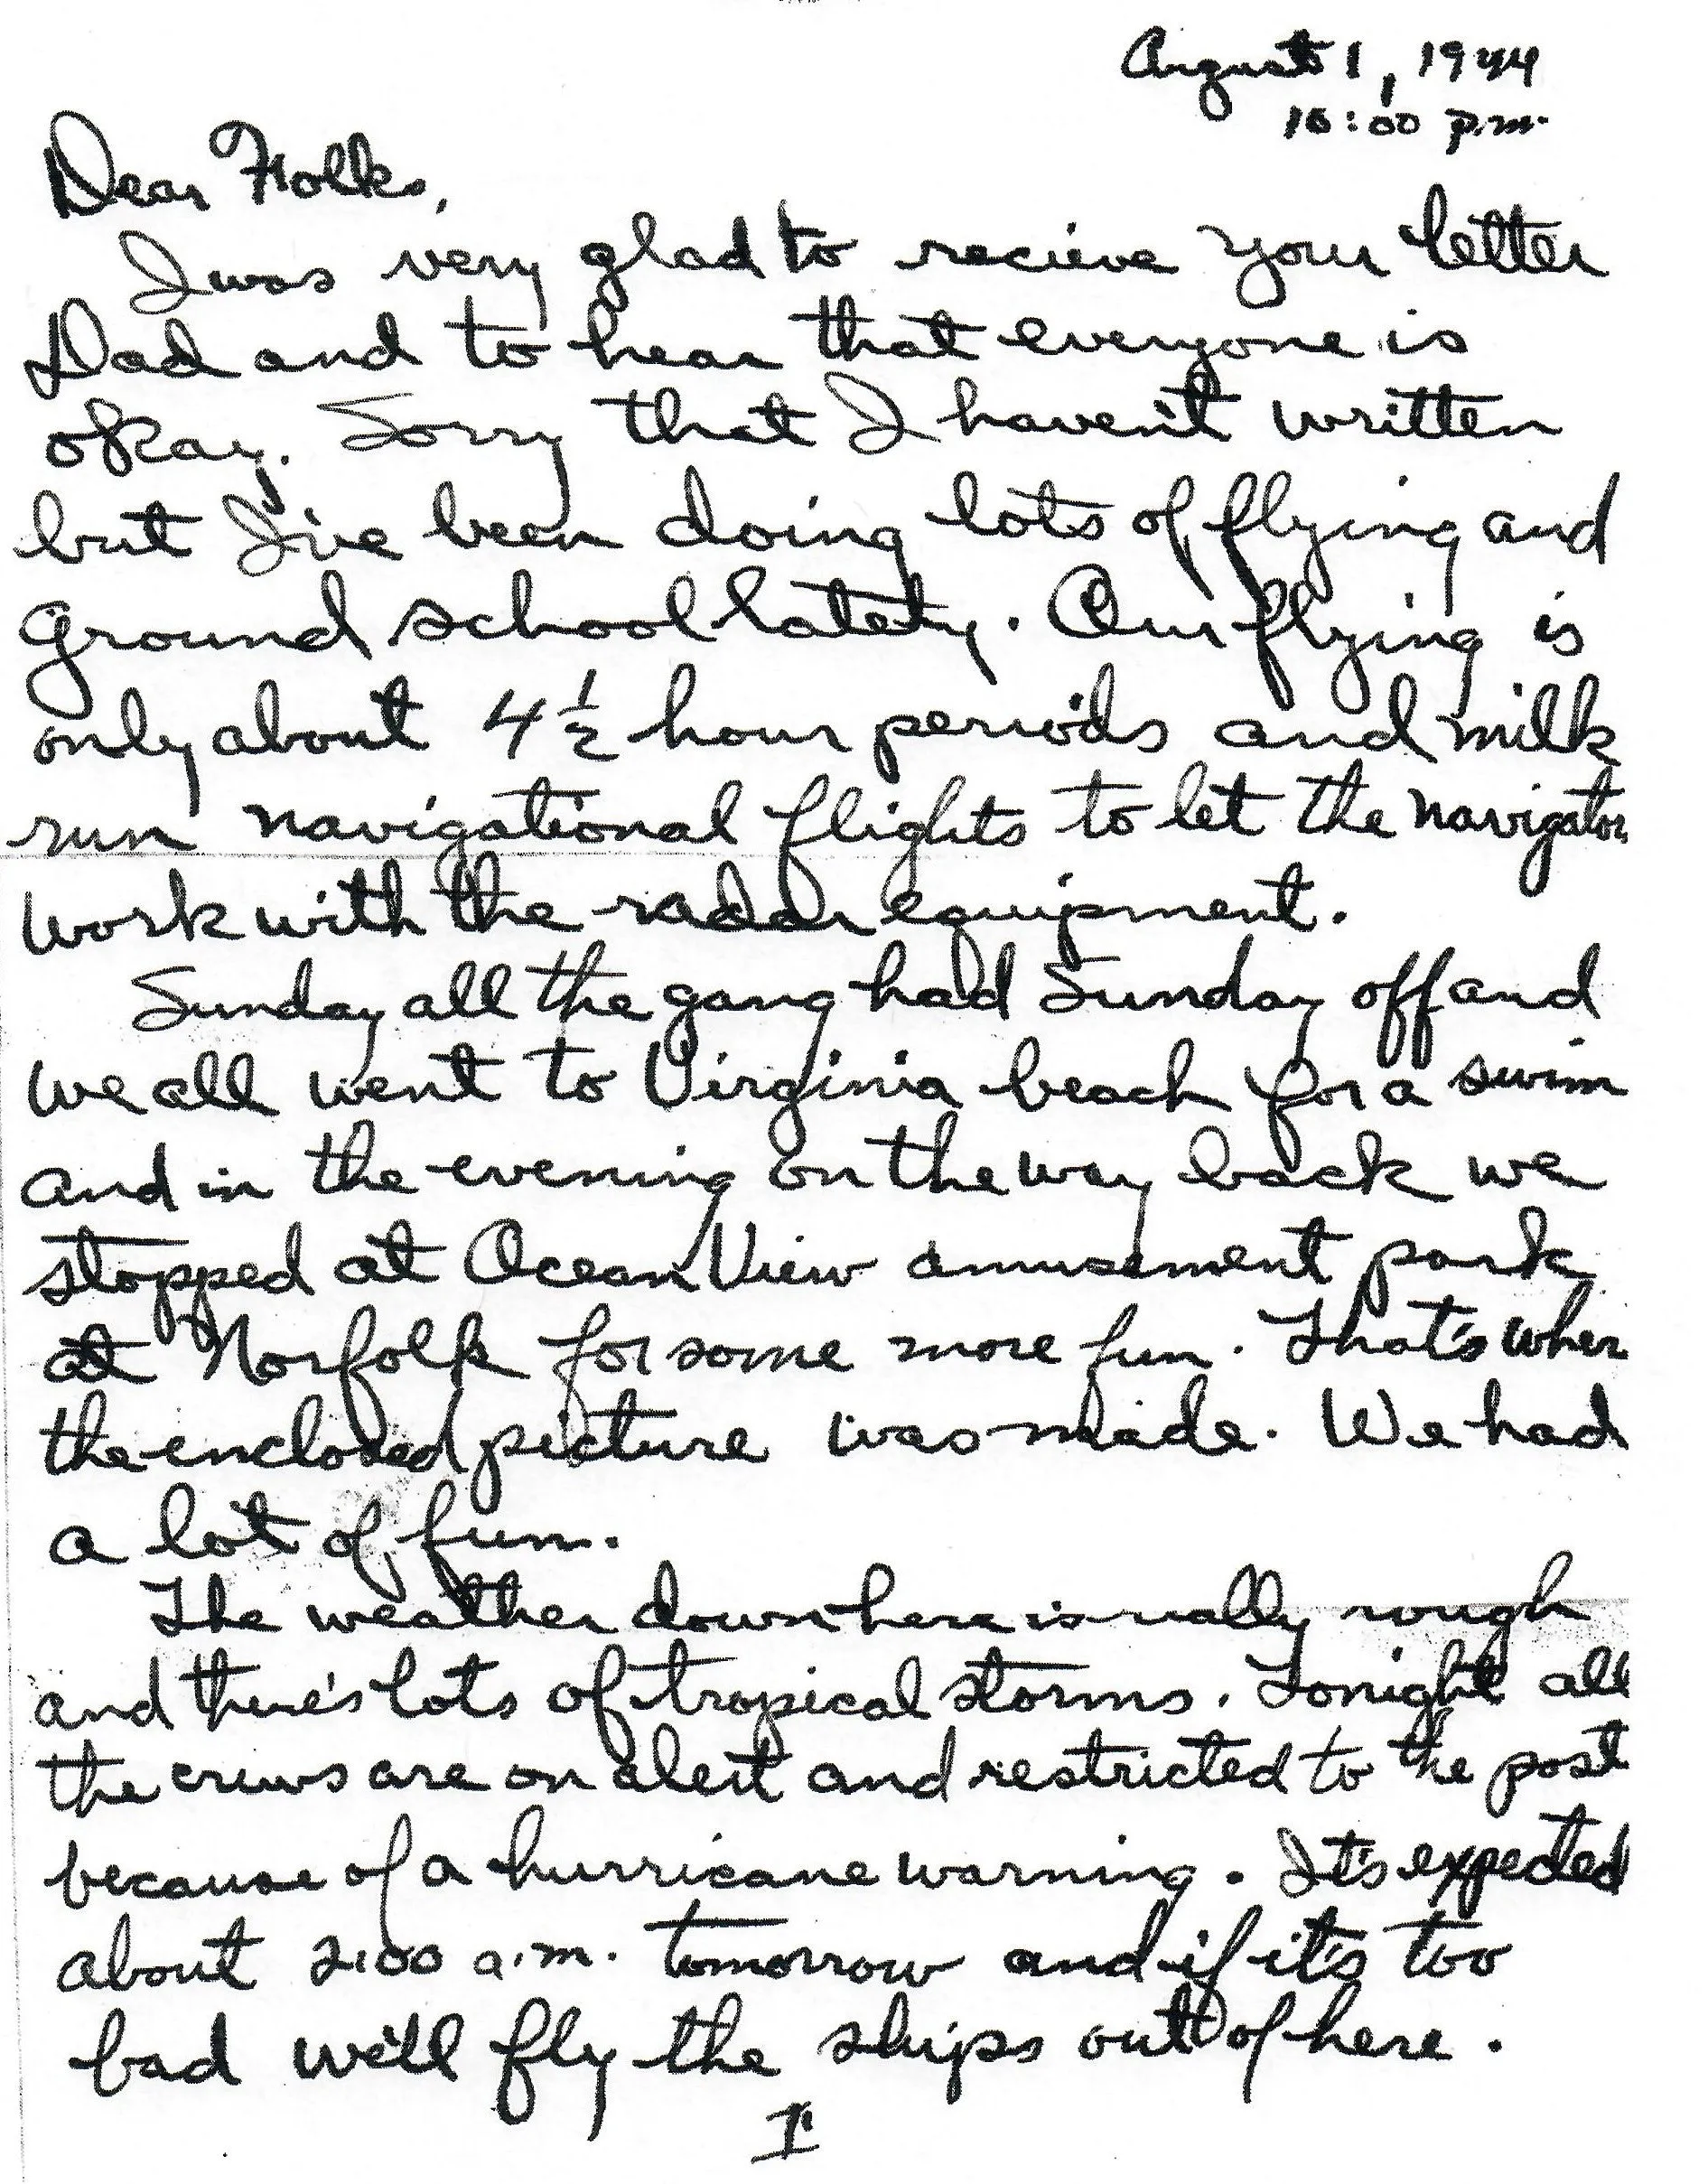 August 1, 1944
10:00 p.m.
Dear Folks,
I was very glad to recieve your letter
Dad and to hear that everyone is
okay. Sorry that I haven't written
but I've been doing lots of flying and
ground school lately. Our flying is
only about 4 1/2 hour periods and milk
run navigational flights to let the navigator
work with the radar equipment.
Sunday all the gang had Sunday off and
we all went to Virginia beach for a swim
and in the evening on the way back we
stopped at Ocean View amusement park
at Norfolk for some more fun. That's wher
the enclosed picture was made. We had
a lot of fun.
The weather down here is really rough
and there's lots of tropical storms. Tonight all
the crews are on alert and restricted to the post
because of a hurricane warning. It's expected
about 2:00 a.m. tomorrow and if it's too
bad we'll fly the ships out of here.
I